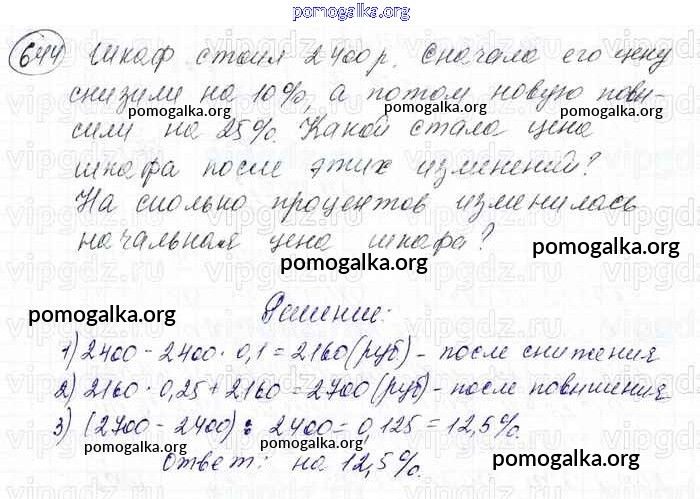 pomogalka.org
644 Шкаф стоил 2400 р. Сначала его цену
снизили на 10%, а потом новую повы-
сили на 25%. Какой стала цена
шкафа после этих изменений?
На сколько процентов изменилась
начальная цена шкафа?
pomogalka.org
pomogalka.org
pomogalka.org
Решение:
pomogalka.org
1) 2400 - 2400 · 0,1 = 2160 (руб) - после снижения
2) 2160 · 0,25 + 2160 = 2700 (руб) - после повышения
3) (2700 - 2400) : 2400 = 0,125 = 12,5%.
pomogalka.org
pomogalka.org
Ответ: на 12,5%.
pomogalka.org
pomogalka.org